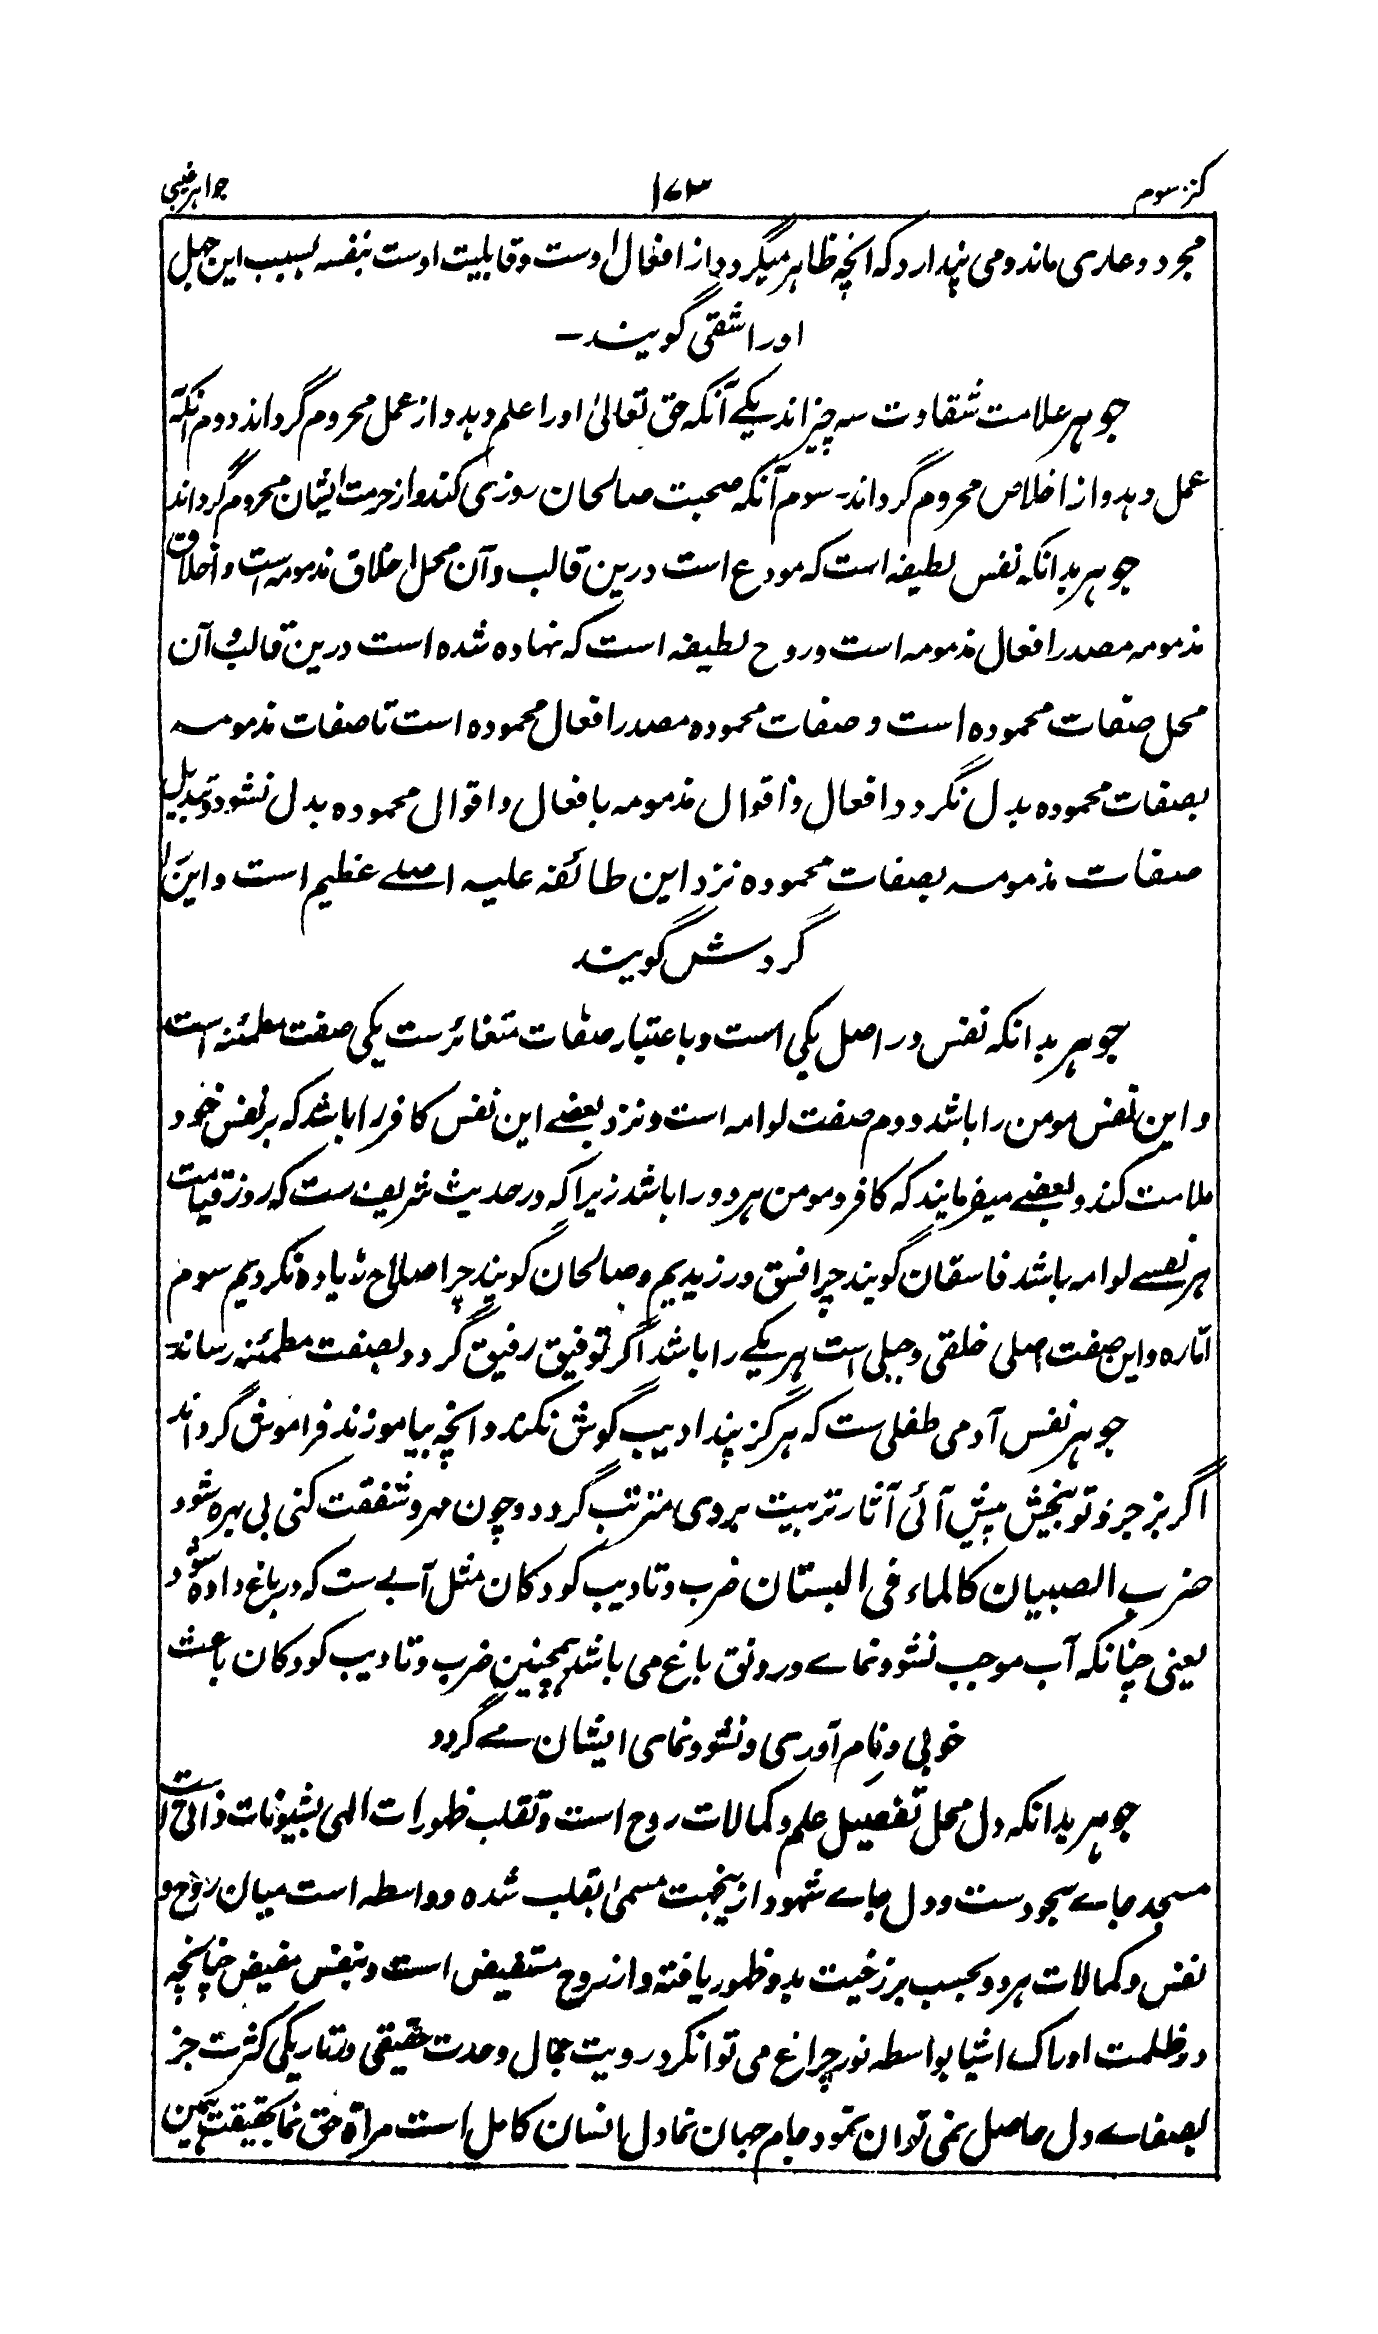 کنز سوم ۱۷۳ جواہر غیبی
مجرد و عاری ماند و می پندارد که انچه ظاہر میگردد از افعال اوست و قابلیت اوست بنفسه بسبب این جہل
اورا شقی گویند۔
جوہر علامت شقاوت سه چیز اند یکے آنکه حق تعالیٰ اورا علم دہد و از عمل محروم گرداند دوم آنکه
عمل دہد و از اخلاص محروم گرداند۔ سوم آنکه صحبت صالحان روزی کند و از حرمت ایشان محروم گرداند
جوہر بدانکه نفس لطیفه است که مودع است درین قالب و آن محل اخلاق مذمومه است و اخلاق
مذمومه مصدر افعال مذمومه است و روح لطیفه است که نہاده شده است درین قالب و آن
محل صفات محموده است و صفات محموده مصدر افعال محموده است تا صفات مذمومه
بصفات محموده بدل نگردد افعال و اقوال مذمومه بافعال و اقوال محموده بدل نشود و تبدیل
صفات مذمومه بصفات محموده نزد این طائفه علیه اصلے عظیم است و این را
گردش گویند
جوہر بدانکه نفس در اصل یکی است و باعتبار صفات متغائرست یکی صفت مطمئنه است
و این نفس مومن را باشد دوم صفت لوامه است و نزد بعضے این نفس کافر را باشد که بر نفس خود
ملامت کند و بعضے میفرمایند که کافر و مومن ہر دو را باشد زیرا که در حدیث شریف ست که روز قیامت
ہر نفسے لوامه باشد فاسقان گویند چرا فسق ورزیدیم و صالحان گویند چرا اصلاح زیاده نکردیم سوم
امّاره و این صفت اصلی خلقی و جبلی است ہر یکے را باشد اگر توفیق رفیق گردد بصفت مطمئنه رساند۔
جوہر نفس آدمی طفلی ست که ہرگز پند ادیب گوش نکند و انچه بیاموزند فراموش گرداند
اگر بزجر و توبیخش پیش آئی آثار تربیت بر وی مترتب گردد و چون مہر و شفقت کنی بی بہره شود
ضرب الصبیان کالماء فی البستان ضرب و تادیب کودکان مثل آبے ست که در باغ داده شود
یعنی چنانکه آب موجب نشو و نمائے و رونق باغ می باشد ہمچنین ضرب و تادیب کودکان باعث
خوبی و نام آوری و نشو و نمای ایشان مے گردد
جوہر بدانکه دل محل تفصیل علم و کمالات روح است و تقلب ظہورات الہی بشیونات ذاتی است
مسجد جاے سجودست و دل جاے شہود ازینجہت مسمیٰ بقلب شده و واسطه است میان روح و
نفس و کمالات ہر دو بحسب برزخیت بدو ظہور یافته و از روح مستفیض است و بنفس مفیض چنانچه
در ظلمت ادراک اشیا بواسطه نور چراغ می توانکرد رویت جمال وحدت حقیقی در تاریکی کثرت جز
بصفاے دل حاصل نمی توان نمود جام جہان نما دل انسان کامل است مرآة حق نما بحقیقت ہمین